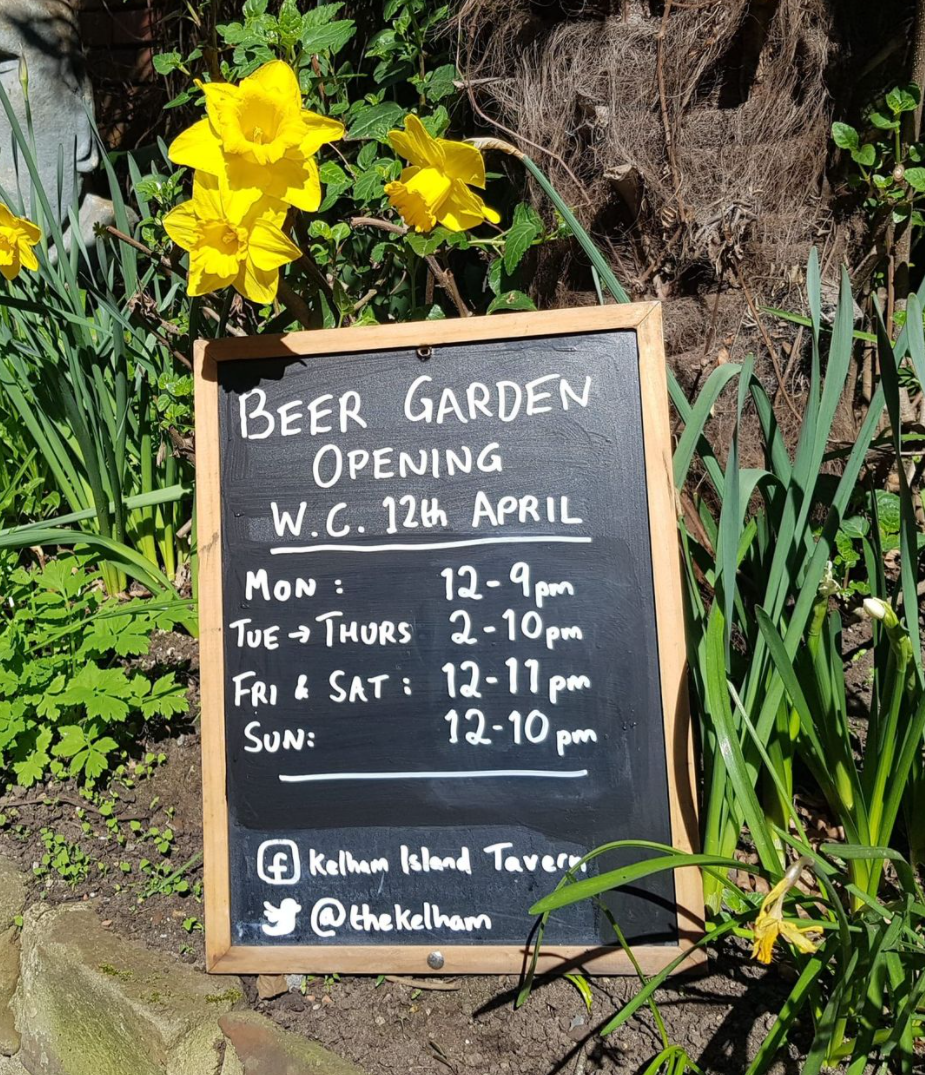 BEER GARDEN
OPENING
W.C. 12th APRIL
MON : 12-9pm
TUE → THURS 2-10pm
FRI & SAT : 12-11pm
SUN: 12-10pm
f Kelham Island Tavern
@thekelham